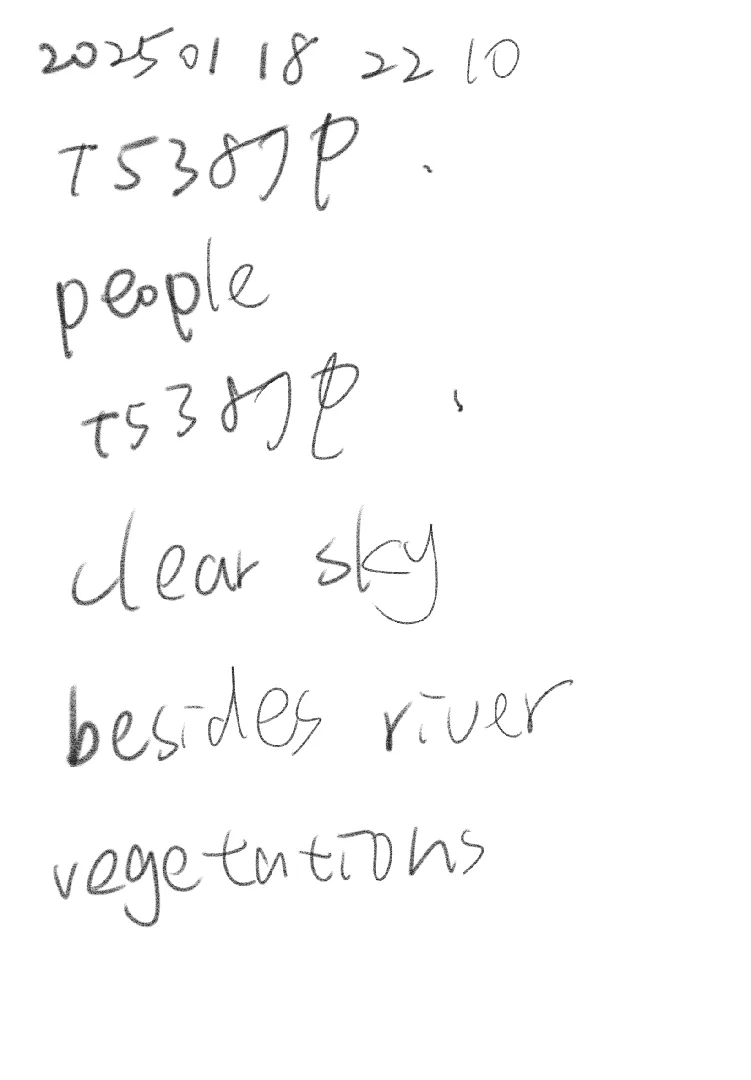 2025 01 18 22 10
T5387P .
people
T5387P .
clear sky
besides river
vegetations